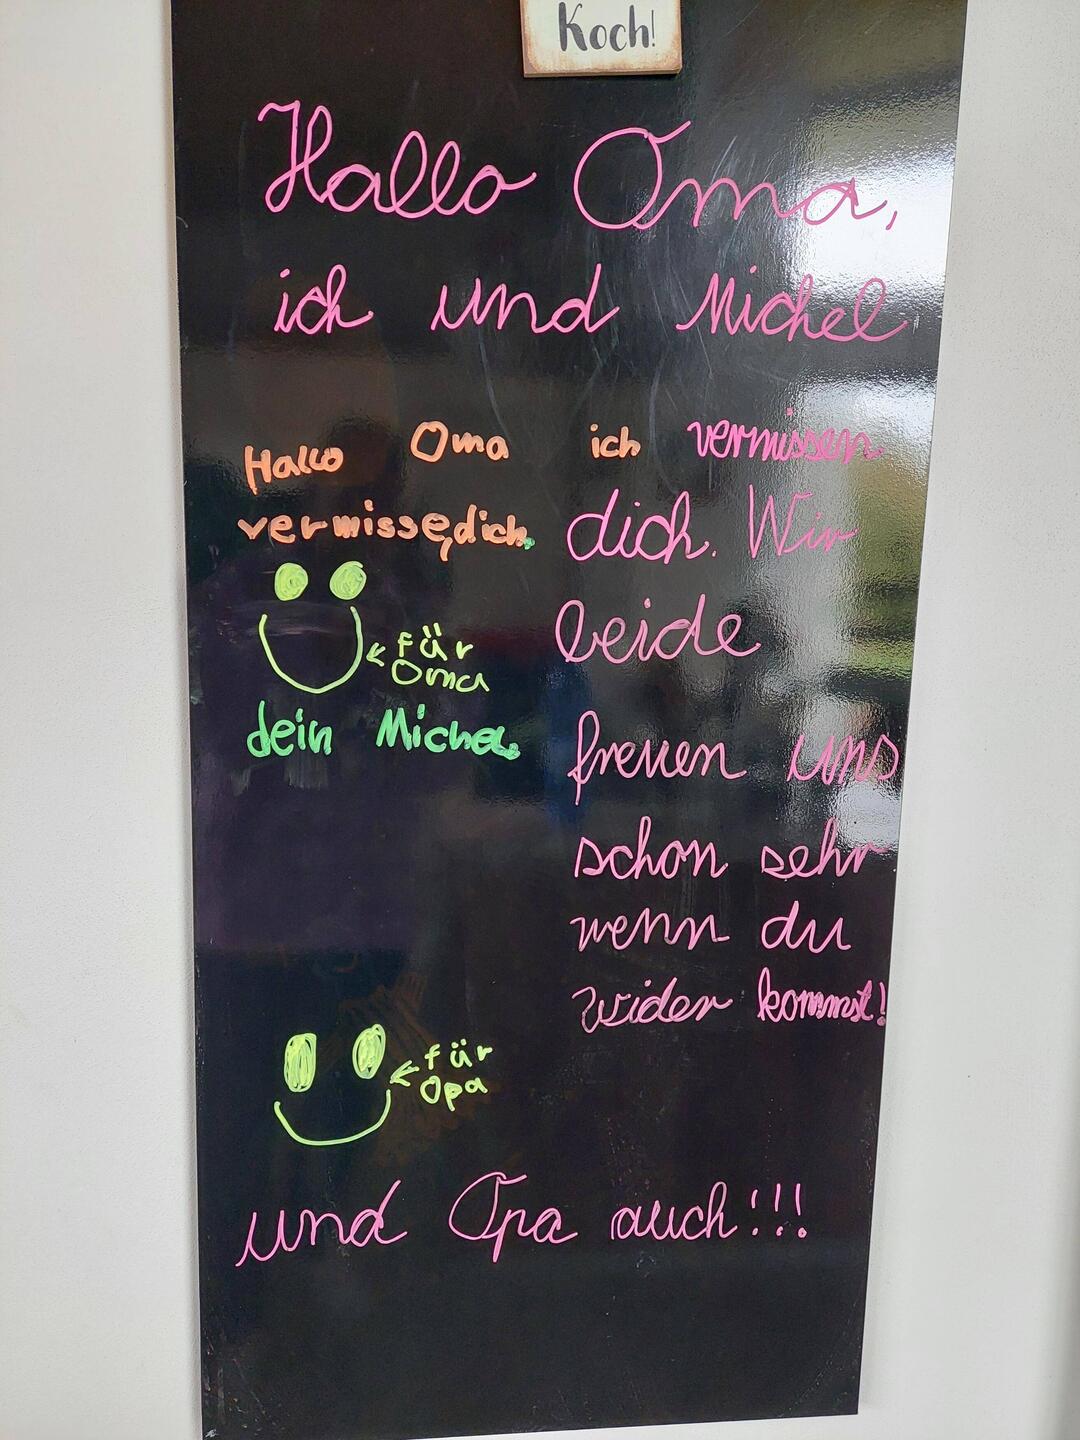 Koch!
Hallo Oma,
ich und Michel
vermissen
dich. Wir
beide
freuen uns
schon sehr
wenn du
wider kommst!
Hallo Oma ich
vermisse, dich.
für
Oma
dein Michel
für
Opa
und Opa auch!!!